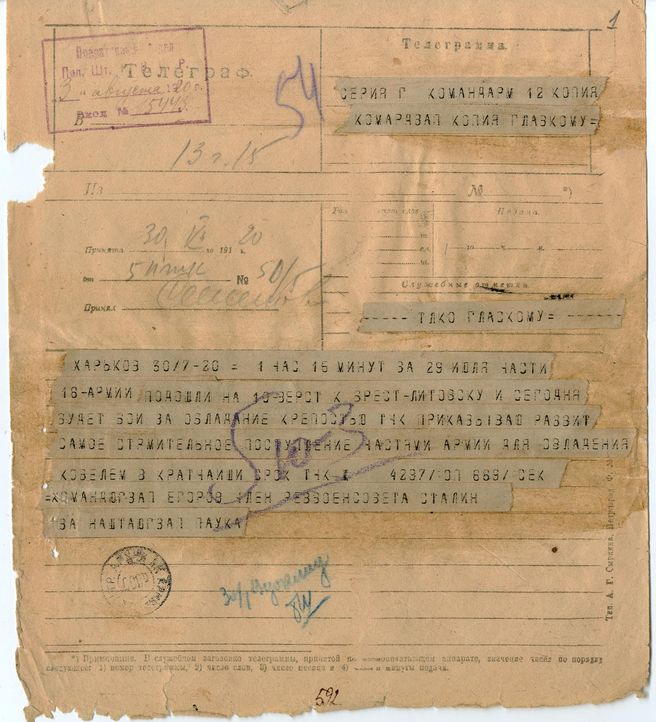 1
Телеграф
Телеграмма.
Пол. Шт.
3 " августа 1920 г.
Вход. № 5443
В
54
СЕРИЯ Г КОМАНДАРМ 12 КОПИЯ
КОМАРЗАП КОПИЯ ГЛАВКОМУ=
13 г. 15
Из
№
*)
Принята 30 VII го 191 г. 20
от 5 № 50/5
Принял
Служебные отметки
----- ТЛКО ГЛАВКОМУ= -----
ХАРЬКОВ 30/7-20 = 1 ЧАС 15 МИНУТ ЗА 29 ИЮЛЯ ЧАСТИ
16-АРМИИ ПОДОШЛИ НА 10 ВЕРСТ К БРЕСТ-ЛИТОВСКУ И СЕГОДНЯ
БУДЕТ БОИ ЗА ОВЛАДАНИЕ КРЕПОСТЬЮ ТЧК ПРИКАЗЫВАЮ РАЗВИТ
САМОЕ СТРМИТЕЛЬНОЕ ПОСТУПЛЕНИЕ ЧАСТЯМИ АРМИИ ДЛЯ ОВЛАДЕНИЯ
КОВЕЛЕМ В КРАТЧАИШИ СРОК ТЧК 4297/ОП 669/ СЕК
=КОМАНДЮГЗАП ЕГОРОВ ЧЛЕН РЕВВОЕНСОВЕТА СТАЛИН
ЗА НАШТАЮГЗАП ПАУКА
30/7
*) Примечание. В служебном заголовке телеграммы, принятой по аппарате, значение чисел по порядку
следующее: 1) номер телеграммы, 2) число слов, 3) число месяца и 4) и минуты подачи.
Тип. А. Г. Сыркина,
592